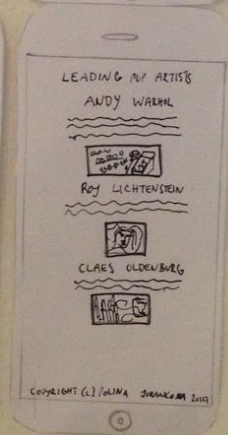 LEADING POP ARTISTS
ANDY WARHOL
ROY LICHTENSTEIN
CLAES OLDENBURG
COPYRIGHT (C) POLINA 2017